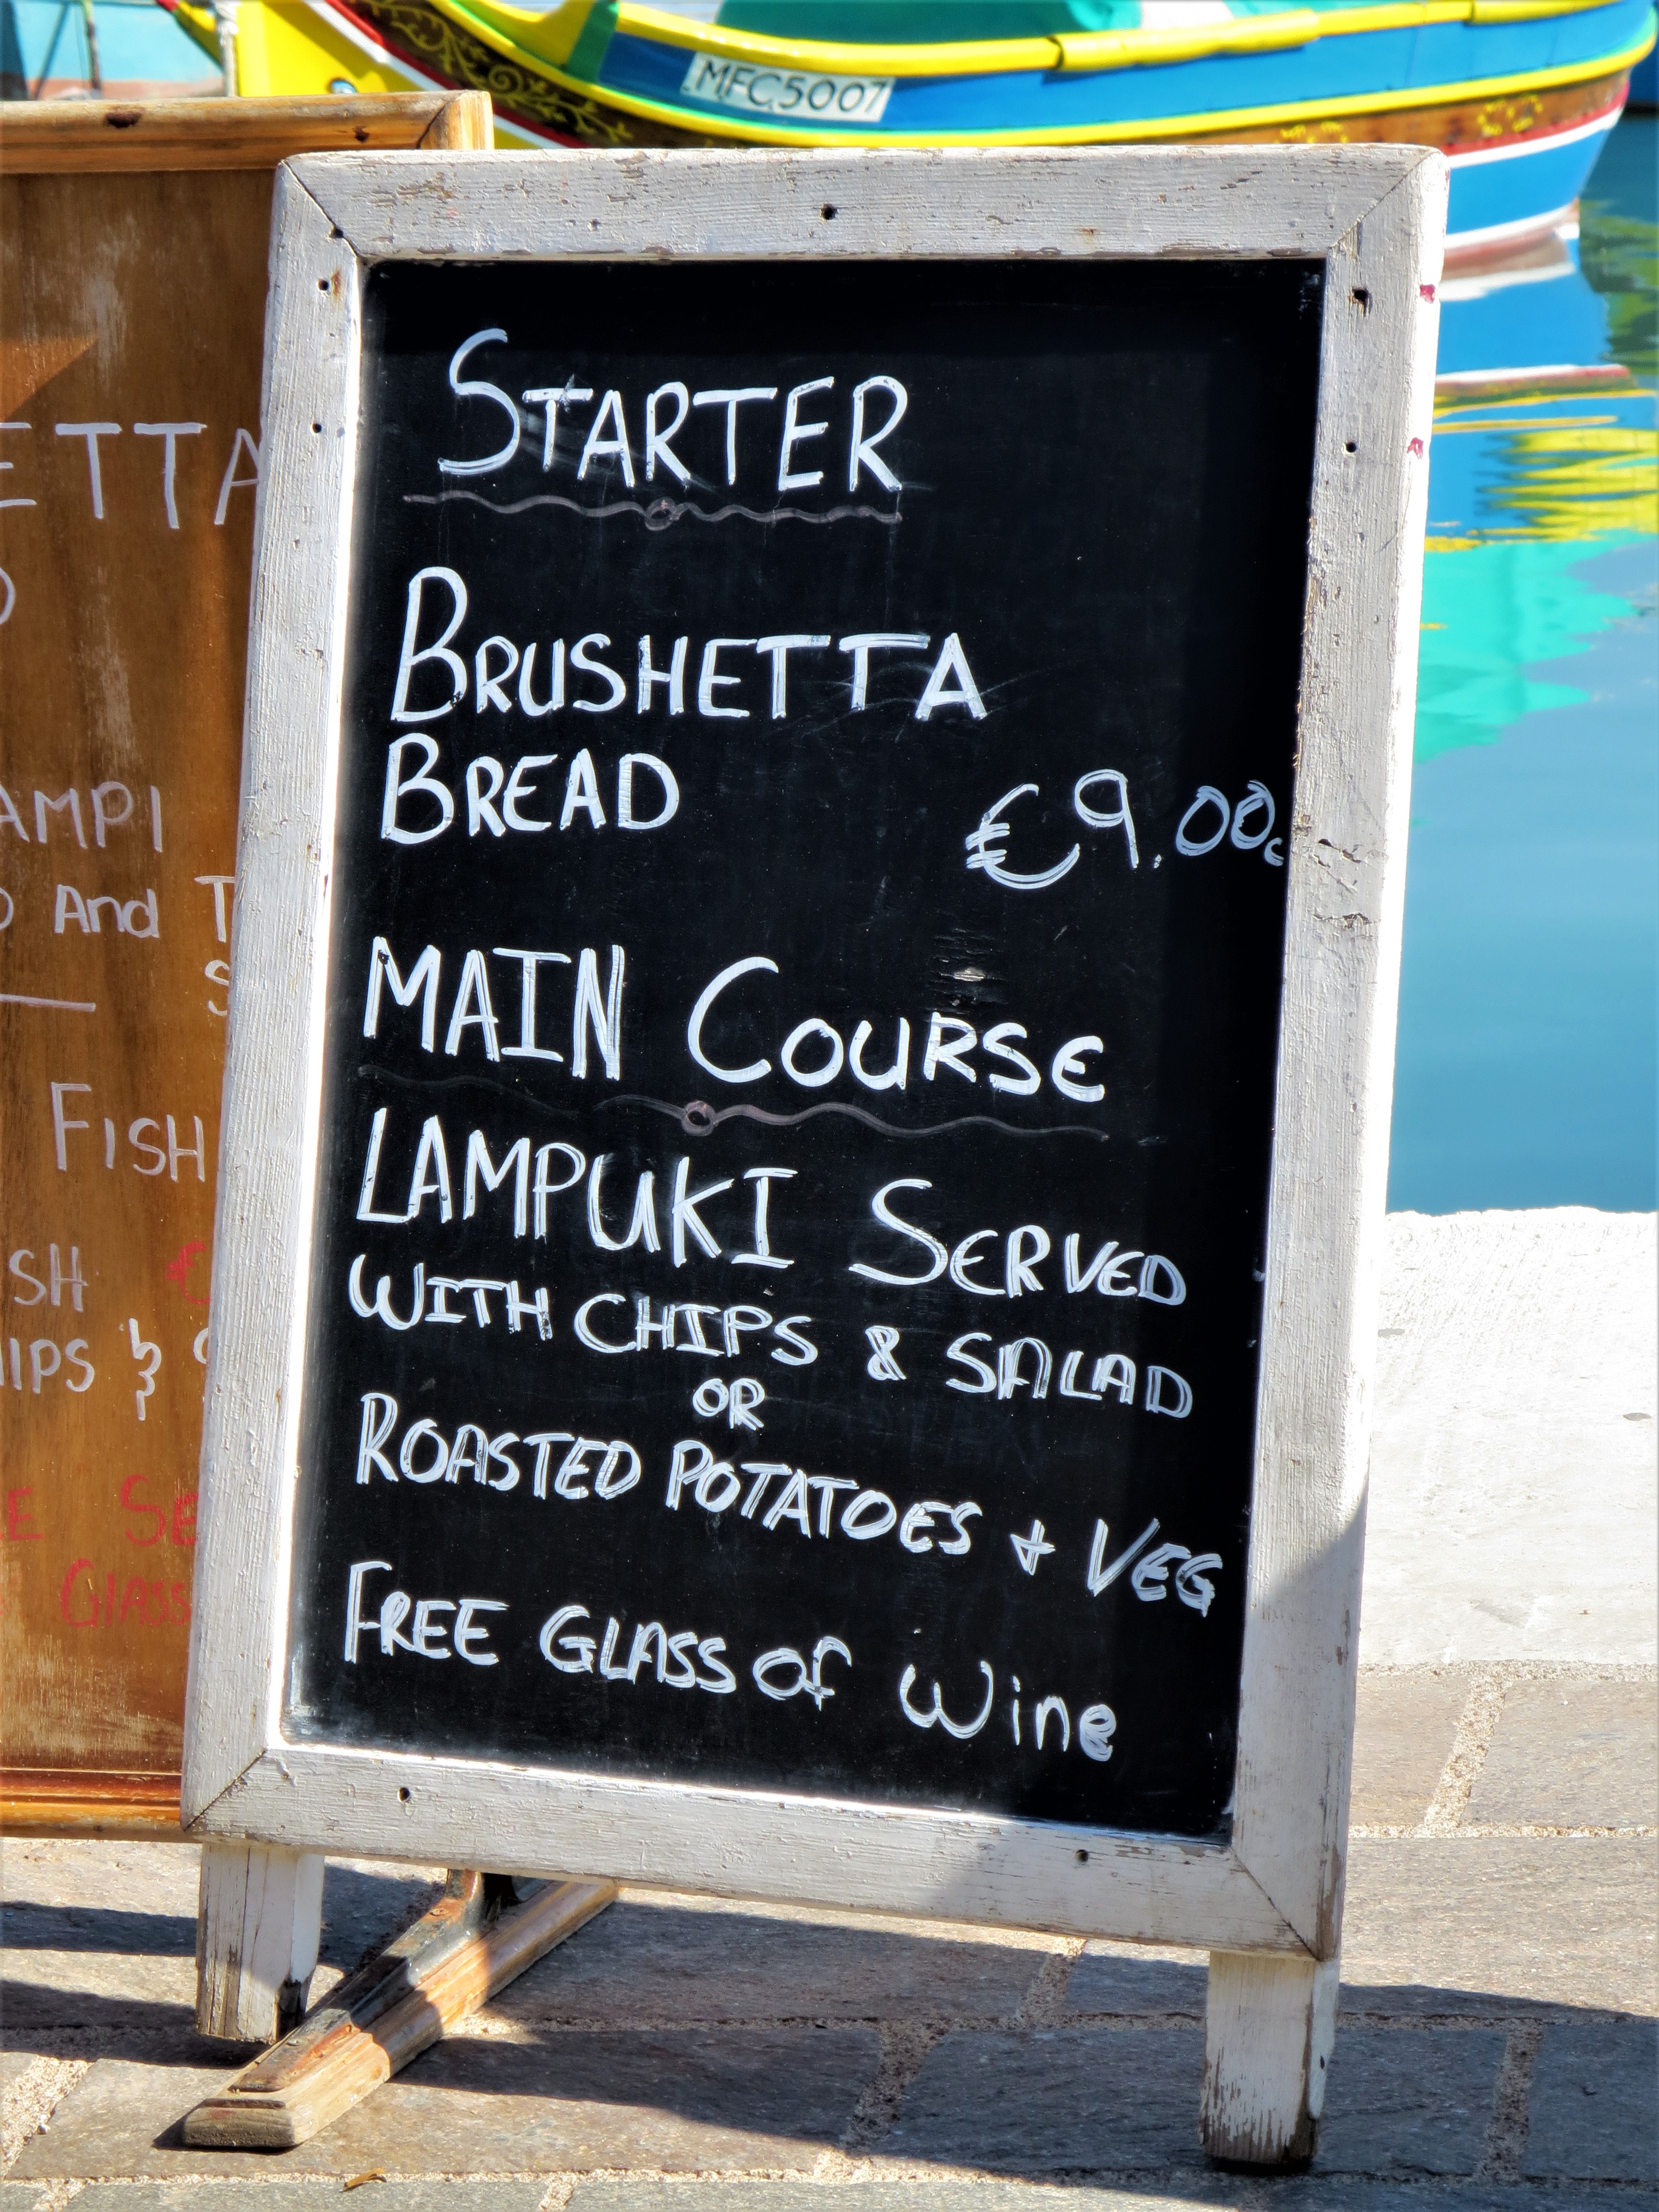 MFC5007
STARTER
BRUSHETTA
BREAD
€9.00c
MAIN COURSE
LAMPUKI SERVED
WITH CHIPS & SALAD
OR
ROASTED POTATOES + VEG
FREE GLASS of Wine
ETTA
AMPI
And
FISH
SH €
IPS &
E SE
GLASS